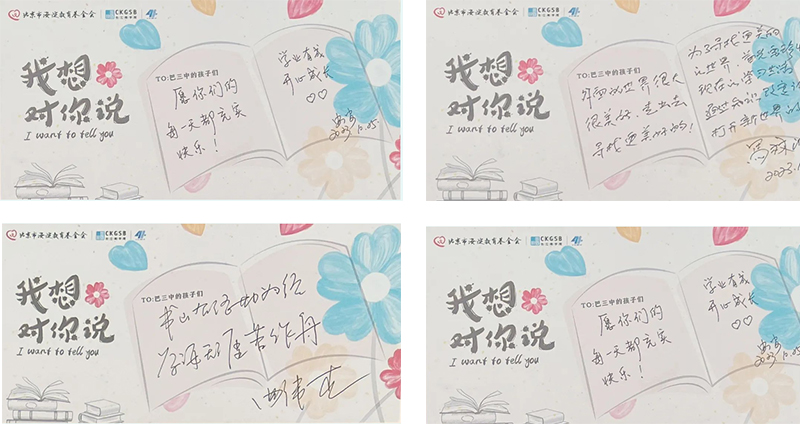 北京市海淀教育基金会 CKGSB 长江商学院
我想
对你说
I want to tell you
TO:巴三中的孩子们
愿你们的
每一天都充实
快乐!
学业有成
开心成长
2023.10.05
北京市海淀教育基金会 CKGSB 长江商学院
我想
对你说
I want to tell you
TO:巴三中的孩子们
外面的世界很大
很美好,走出去
寻找更美好的!
为了寻找更美的
现在认
打开新世界的
2023.1
北京市海淀教育基金会 CKGSB 长江商学院
我想
对你说
I want to tell you
TO:巴三中的孩子们
书山有路勤为径
学海无涯苦作舟
北京市海淀教育基金会 CKGSB 长江商学院
我想
对你说
I want to tell you
TO:巴三中的孩子们
愿你们的
每一天都充实
快乐!
学业有成
开心成长
2023.10.05